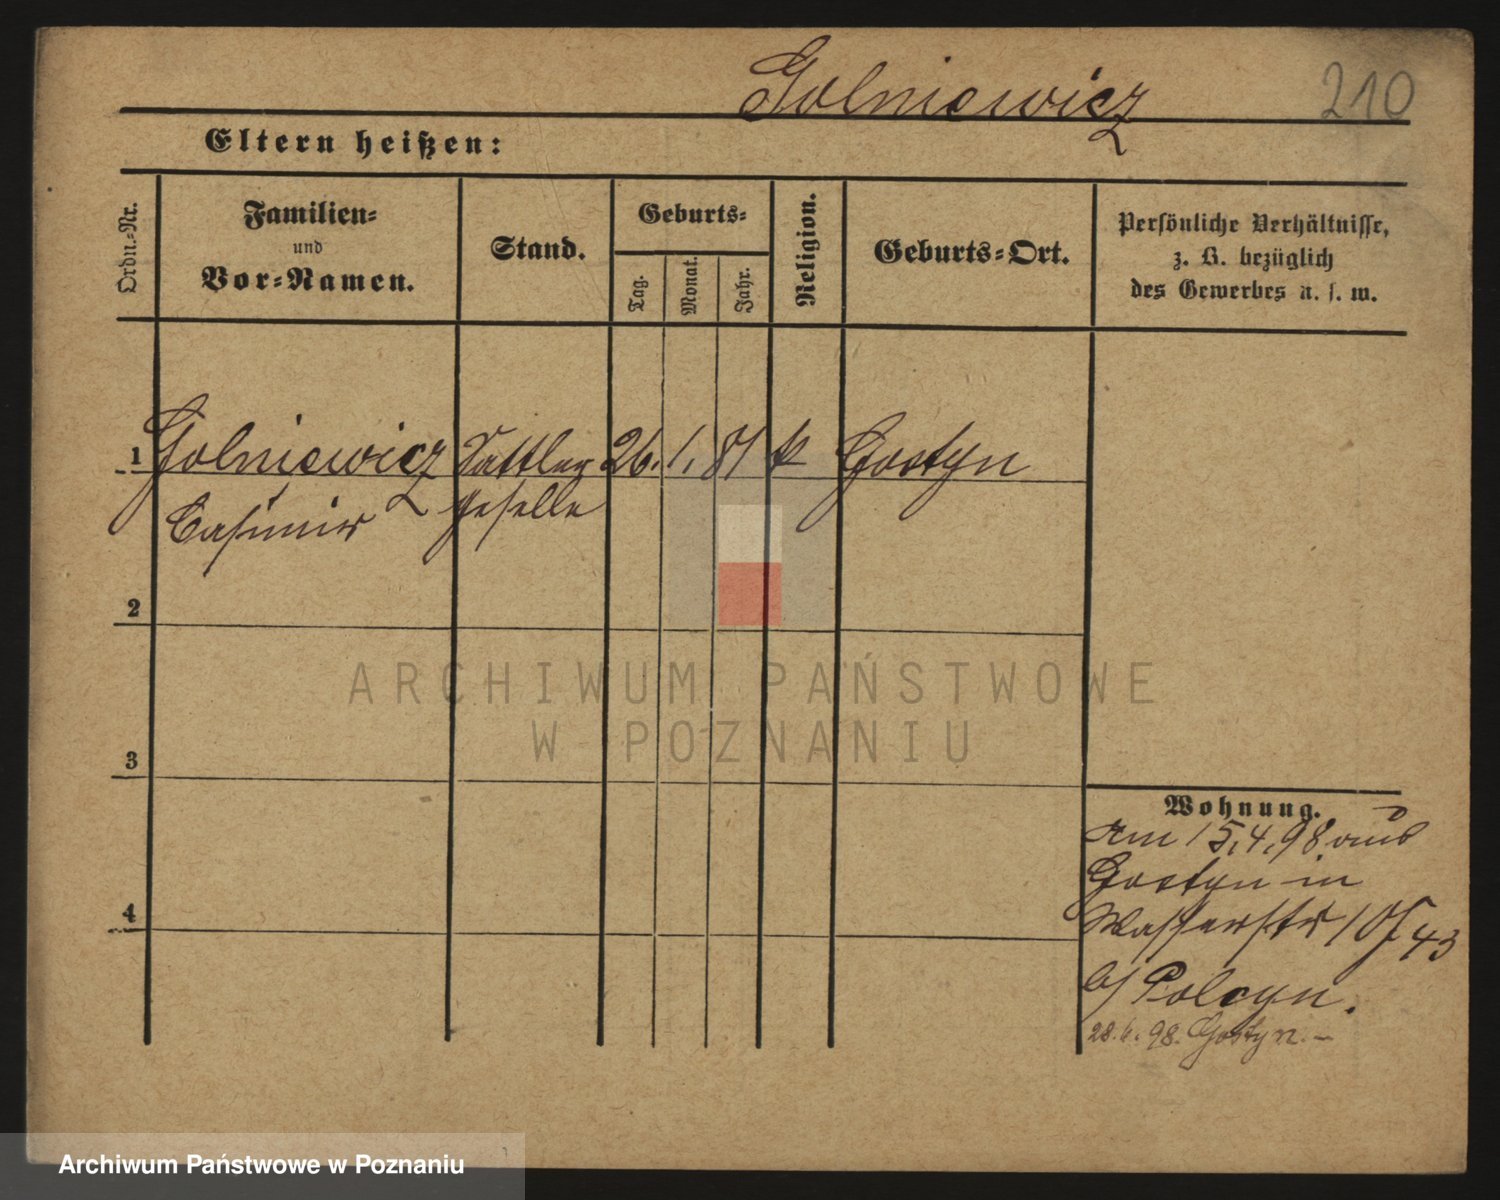 Golniewicz 210
Eltern heißen:
Ordn.-Nr.
Familien-
und
Vor-Namen.
Stand.
Geburts-
Tag.
Monat.
Jahr.
Religion.
Geburts-Ort.
Persönliche Verhältnisse,
z. B. bezüglich
des Gewerbes u. s. w.
1 Golniewicz Sattler 26. 1. 81 k Gostyn
Casimir geselle
2
3
4
Wohnung.
Am 15.4.98 aus
Gostyn in
Wasserstr 43
b/ Polcyn.
28.6.98. Gostyn. –
ARCHIWUM PAŃSTWOWE
W POZNANIU
Archiwum Państwowe w Poznaniu